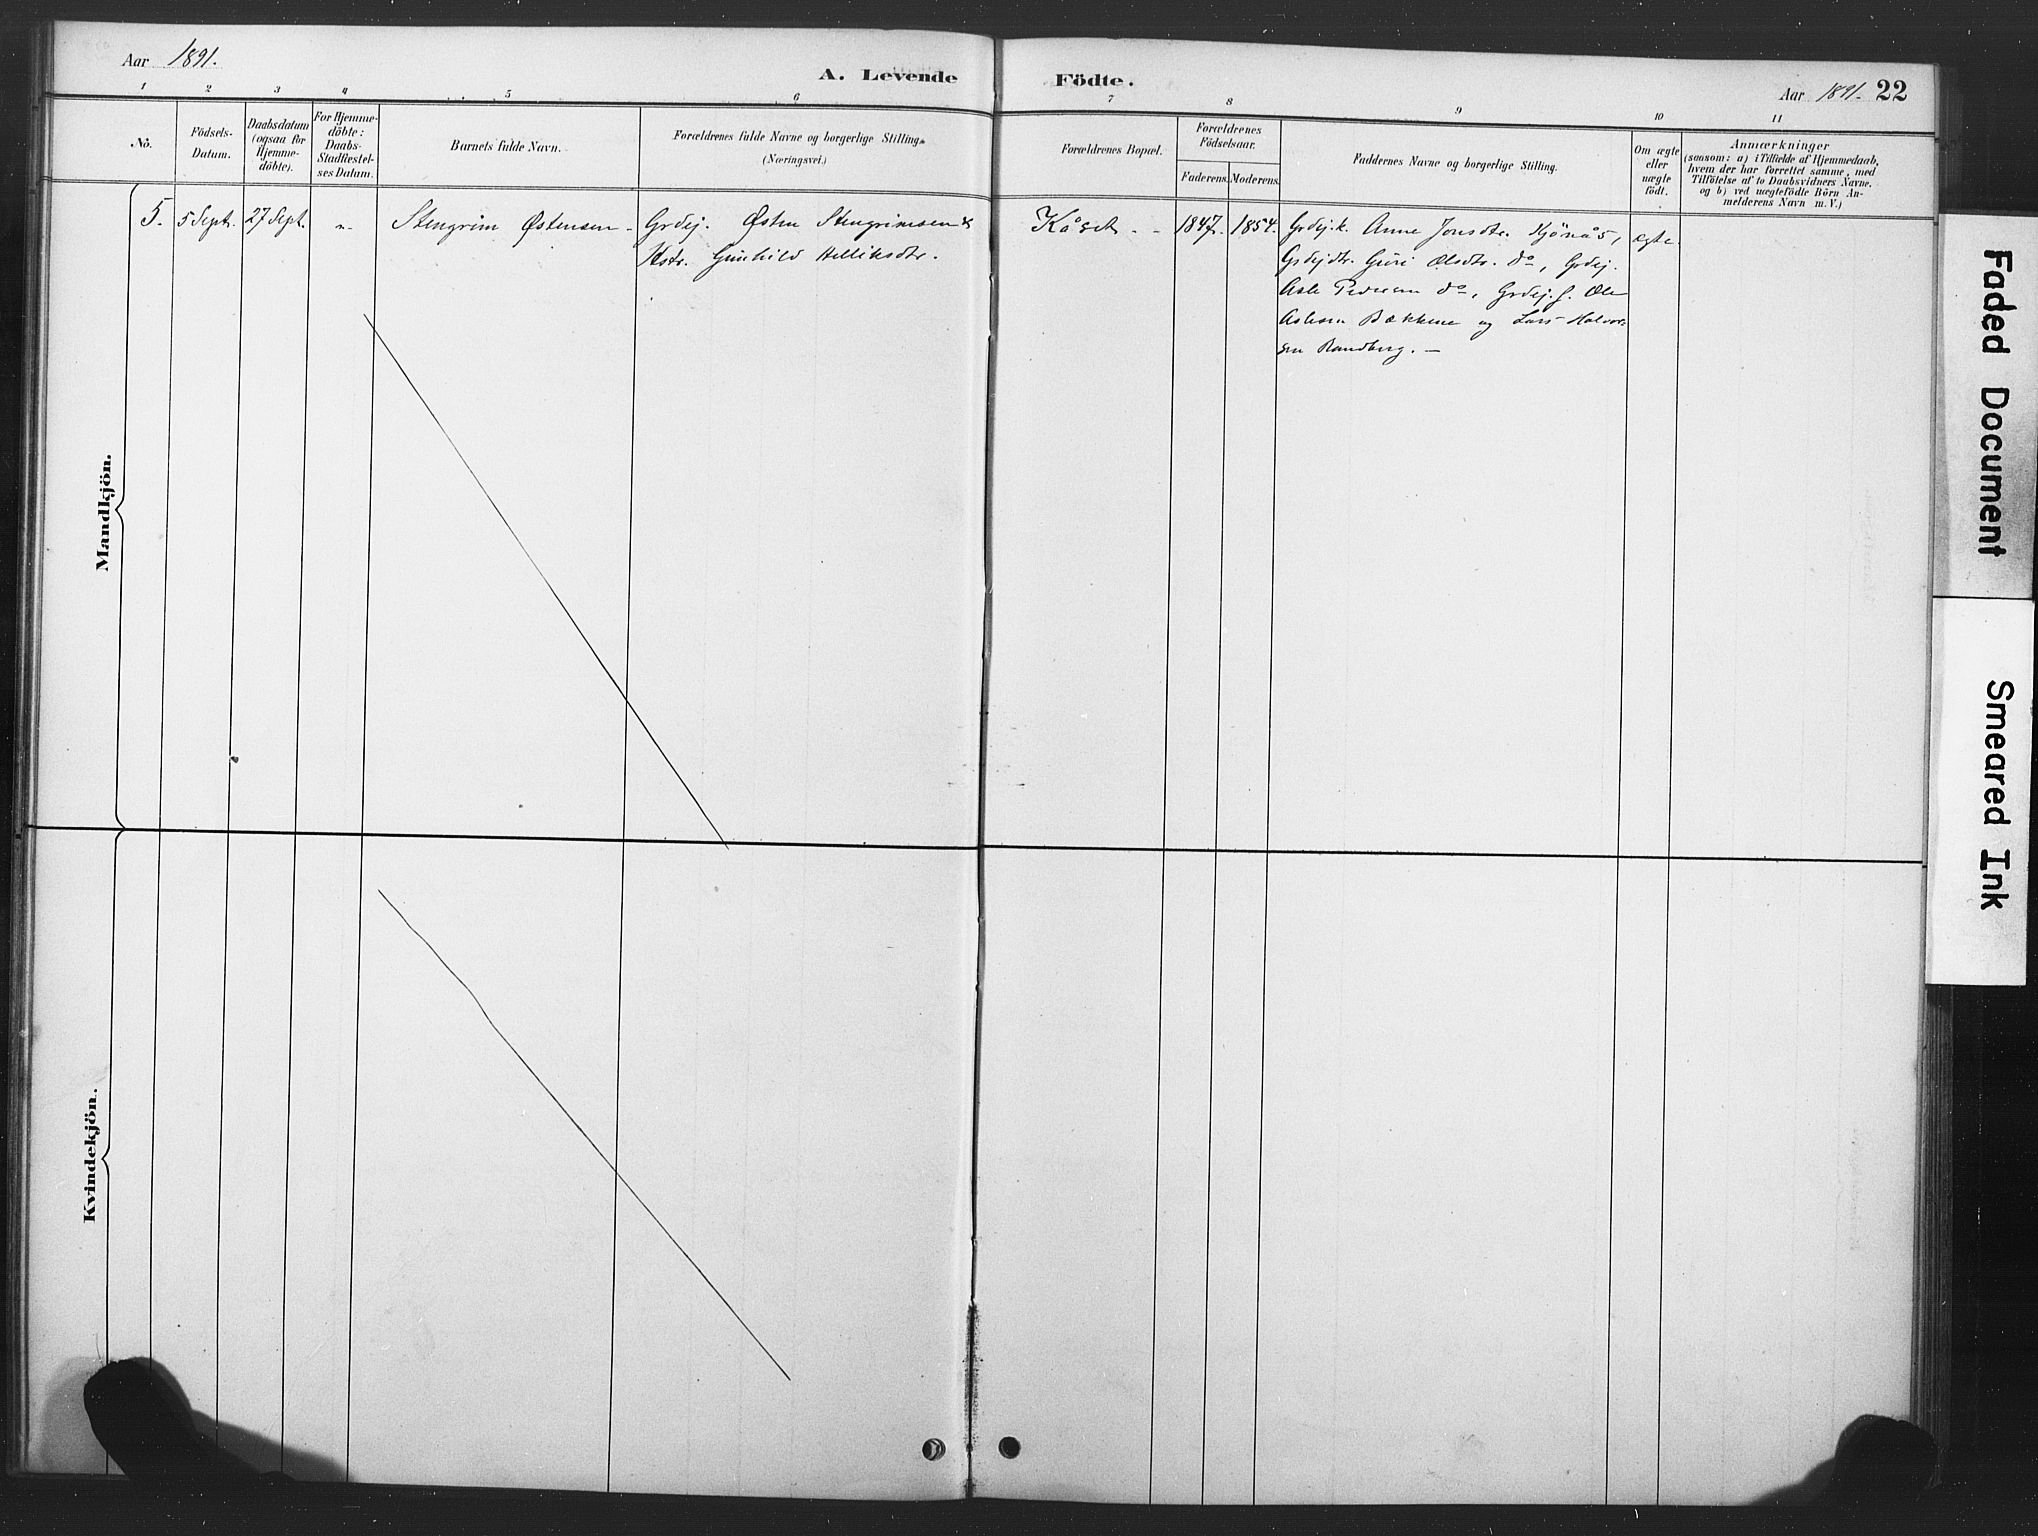 Aar 1891.
A. Levende Födte.
Aar 1891. 22
1 2 3 4 5 6 7 8 9 10 11
No.
Födsels-
Datum.
Daabsdatum
(ogsaa for
Hjemme-
döbte).
For Hjemme-
döbte:
Daabs-
Stadfæstel-
ses Datum.
Barnets fulde Navn.
Forældrenes fulde Navne og borgerlige Stilling.
(Næringsvei.)
Forældrenes Bopæl.
Forældrenes
Födselsaar.
Faderens. Moderens.
Faddernes Navne og borgerlige Stilling.
Om ægte
eller
uægte
født.
Anmærkninger
(saasom: a) i Tilfælde af Hjemmedaab,
hvem der har forrettet samme, med
Tilföielse af to Daabsvidners Navne.
og b) ved uægtefödte Börn An-
melderens Navn m. V.)
Mandkjön.
5. 5 Sept. 27 Sept. „- Stengrim Østensen - Grdej. Østen Stengrimsen &
Kstr. Gunhild Helliksdtr.
Kåset - - 1847. 1854. Grdej.k. Anne Jonsdtr. Kjønås,
Grdejdtr. Guri Olsdtr. do, Grdej.
Asle Pedersen do, Grdej.s. Ole
Aslesen Bækkene og Lars Halvor-
sen Randberg. —
ægte.
Kvindekjön.
Faded Document
Smeared Ink